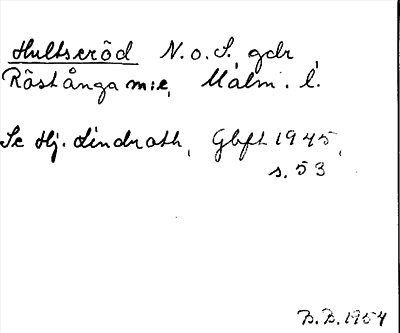 Hultseröd N. o. S. gdr
Röstånga m:e, Malm. l.
Se Hj. Lindroth, Gbft 1945,
s. 53
B.B. 1954